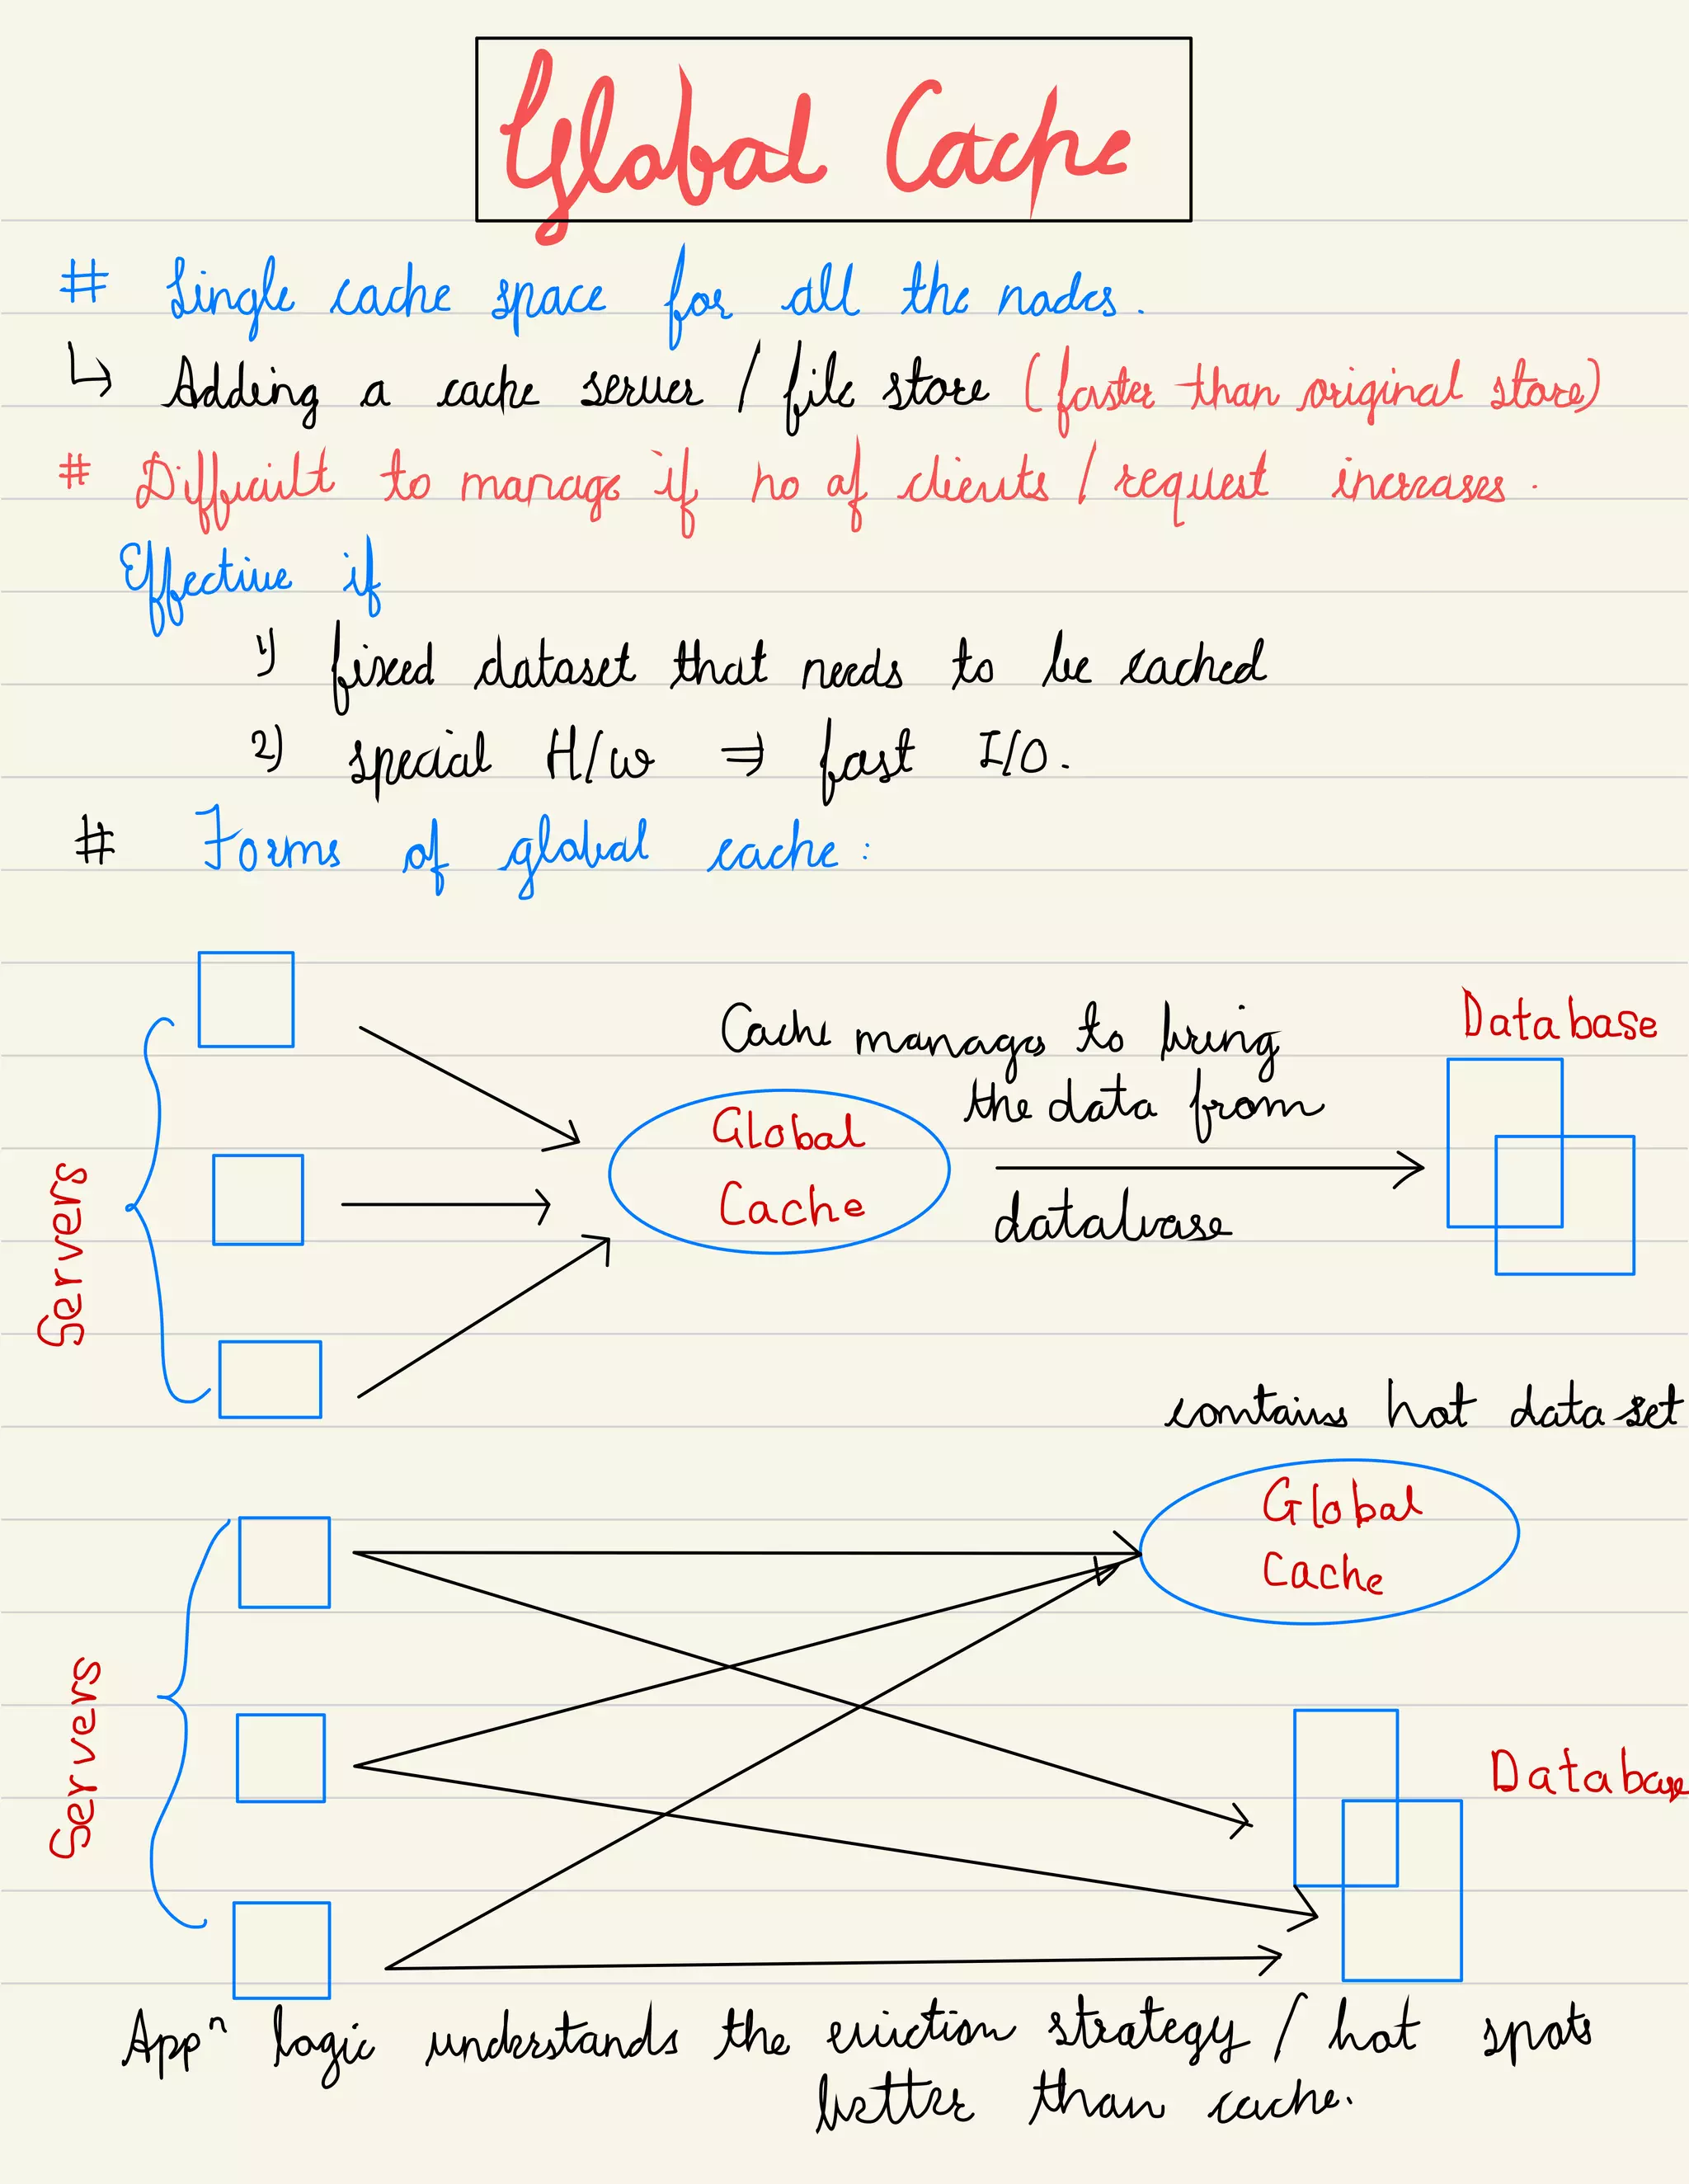 Global Cache
# Single cache space for all the nodes.
↳ Adding a cache server / file store (faster than original store)
# Difficult to manage if no of clients / request increases.
Effective if
1) fixed dataset that needs to be cached
2) special H/w ⇒ fast I/O.
# Forms of global cache:
Cache manages to bring
the data from
database
Database
Global
Cache
Servers
contains hot data set
Global
Cache
Servers
Database
Appⁿ logic understands the eviction strategy / hot spots
better than cache.